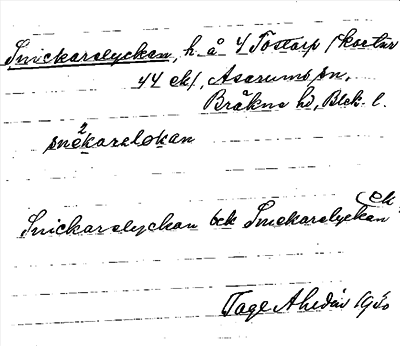 Snickarelyckan, h. å 4 Tostarp (kartur
44 ek), Asarums sn,
Bräkne hd, Blek. l.
snekarelokan
2
Snickarelyckan och Snekarelyckan ek
Tage Ahldén 1930